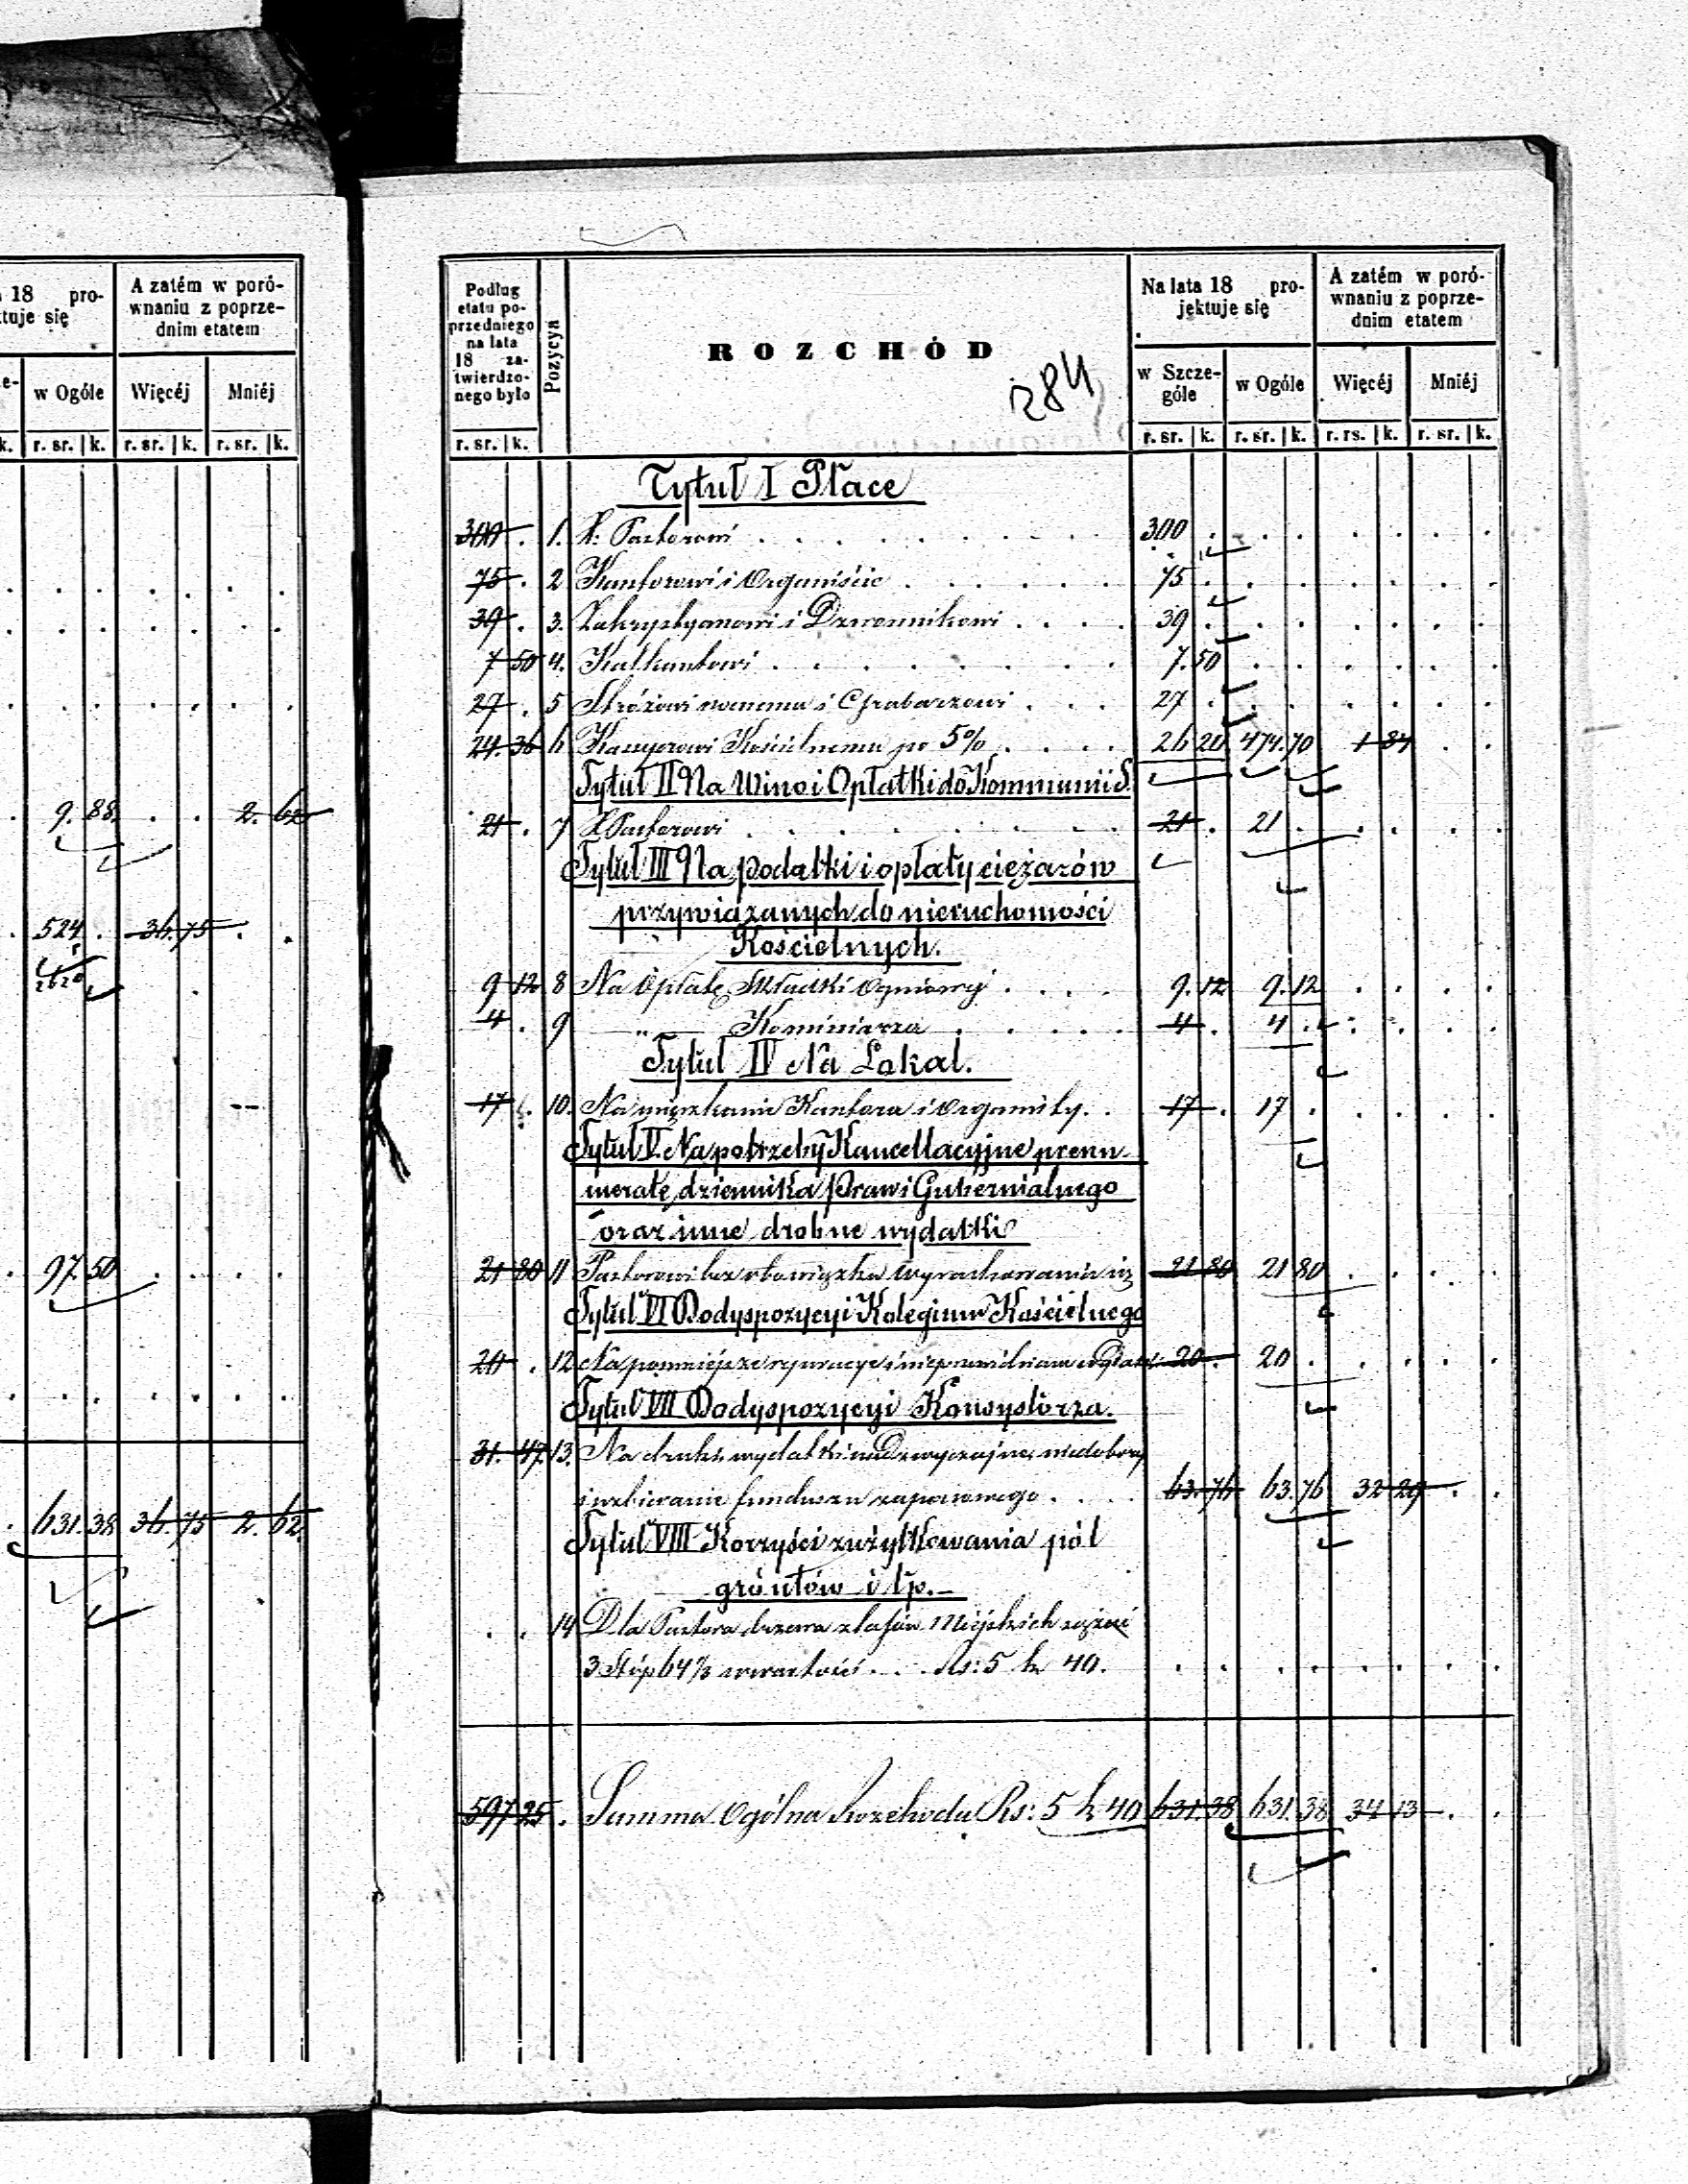 18 pro-
ktuje się
A zatém w poró-
wnaniu z poprze-
dnim etatem
w Ogóle Więcéj Mniéj
k. r. sr. k. r. sr. k. r. sr. k.
9. 88. 2. 62
524 . 36. 75
2620
97. 50
631. 38 36. 75 2. 62
Podług
etatu po-
przedniego
na lata
18 za-
twierdzo-
nego było
Pozycya
ROZCHÓD
284
Na lata 18 pro-
jektuje się
A zatém w poró-
wnaniu z poprze-
dnim etatem
w Szcze-
góle
w Ogóle Więcéj Mniéj
r. sr. k. r. sr. k. r. sr. k. r. rs. k. r. sr. k.
Tytuł I Płace
300 . 1. X: Pastorowi 300
75 . 2 Kantorowi i Organiście 75
39 . 3. Zakrystyanowi i Dzwonnikowi 39
7 50 4. Kalkantowi 7. 50
27 . 5 Stróżowi nocnemu i Grabarzowi 27
24. 36 6 Kassyerowi Kościelnemu po 5% 26 20 474. 70 1 84
Tytuł II Na Wino i Opłatki do Kommunii S.
21 . 7 X Pastorowi 21 . 21 .
Tytuł III Na podatki i opłaty ciężarów
przywiązanych do nieruchomości
Kościelnych.
9 12 8 Na Opłatę Składki Ogniowej 9. 12 9. 12
4 . 9 " Kominiarza 4 . 4 .
Tytuł IV Na Lokal.
17 . 10. Na mieszkanie Kantora i Organisty. 17 . 17 .
Tytuł V. Na potrzeby Kancellacyjne prenu-
meratę dziennika Praw i Gubernialnego
oraz inne drobne wydatki
21 80 11 Pastorowi bez obowiązku wyrachowania się 21 80 21 80
Tytuł VI Do dyspozycyi Kolegium Kościelnego
20 . 12 Na pomniejsze reparacye i nieprzewidziane wydatki 20 . 20 .
Tytuł VII Do dyspozycyi Konsystorza.
31. 47. 13. Na druki, wydatki nadzwyczajne, niedobory
i uzbieranie funduszu zapasowego 63. 76 63. 76 32 29
Tytuł VIII Korzyści z użytkowania pól
gróntów i tp.
14 Dla Pastora drzewa z lasów Miejskich sążni
3 Stóp 64⅔ wartości Rs: 5 k 40.
597 25 . Summa Ogólna Rozchodu Rs: 5 k 40 631. 38 631. 38 34 13